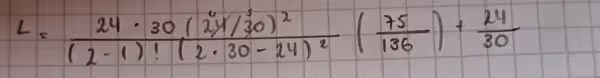 L = 24 · 30 (24/30)² / (2-1)! (2·30-24)² (75/136) + 24/30